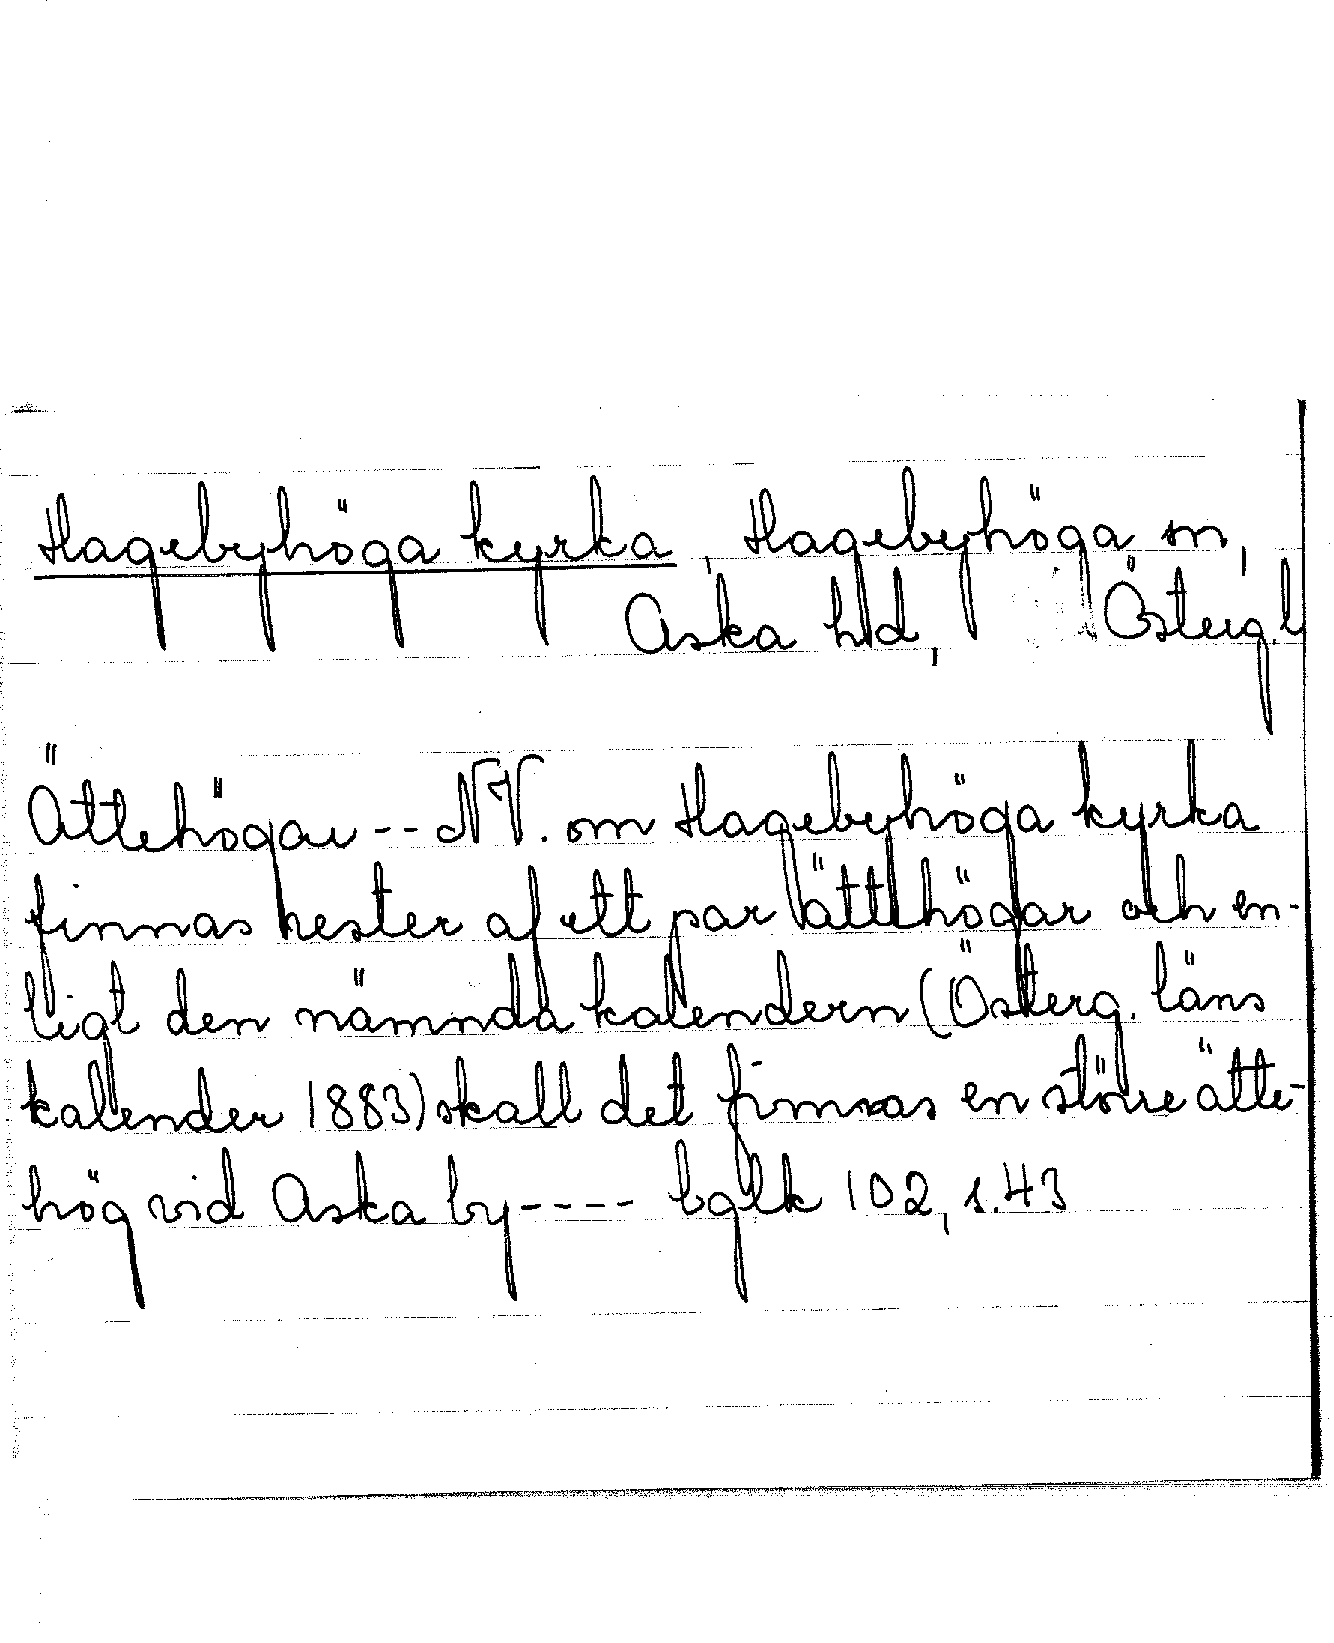 Hagebyhöga kyrka, Hagebyhöga sn,
Aska hd, Österg.l
Ättehögar -- NV. om Hagebyhöga kyrka
finnas rester af ett par ättehögar och en-
ligt den nämnda kalendern (Österg. läns
kalender 1883) skall det finnas en större ätte-
hög vid Aska by ---- bglk 102, s. 43